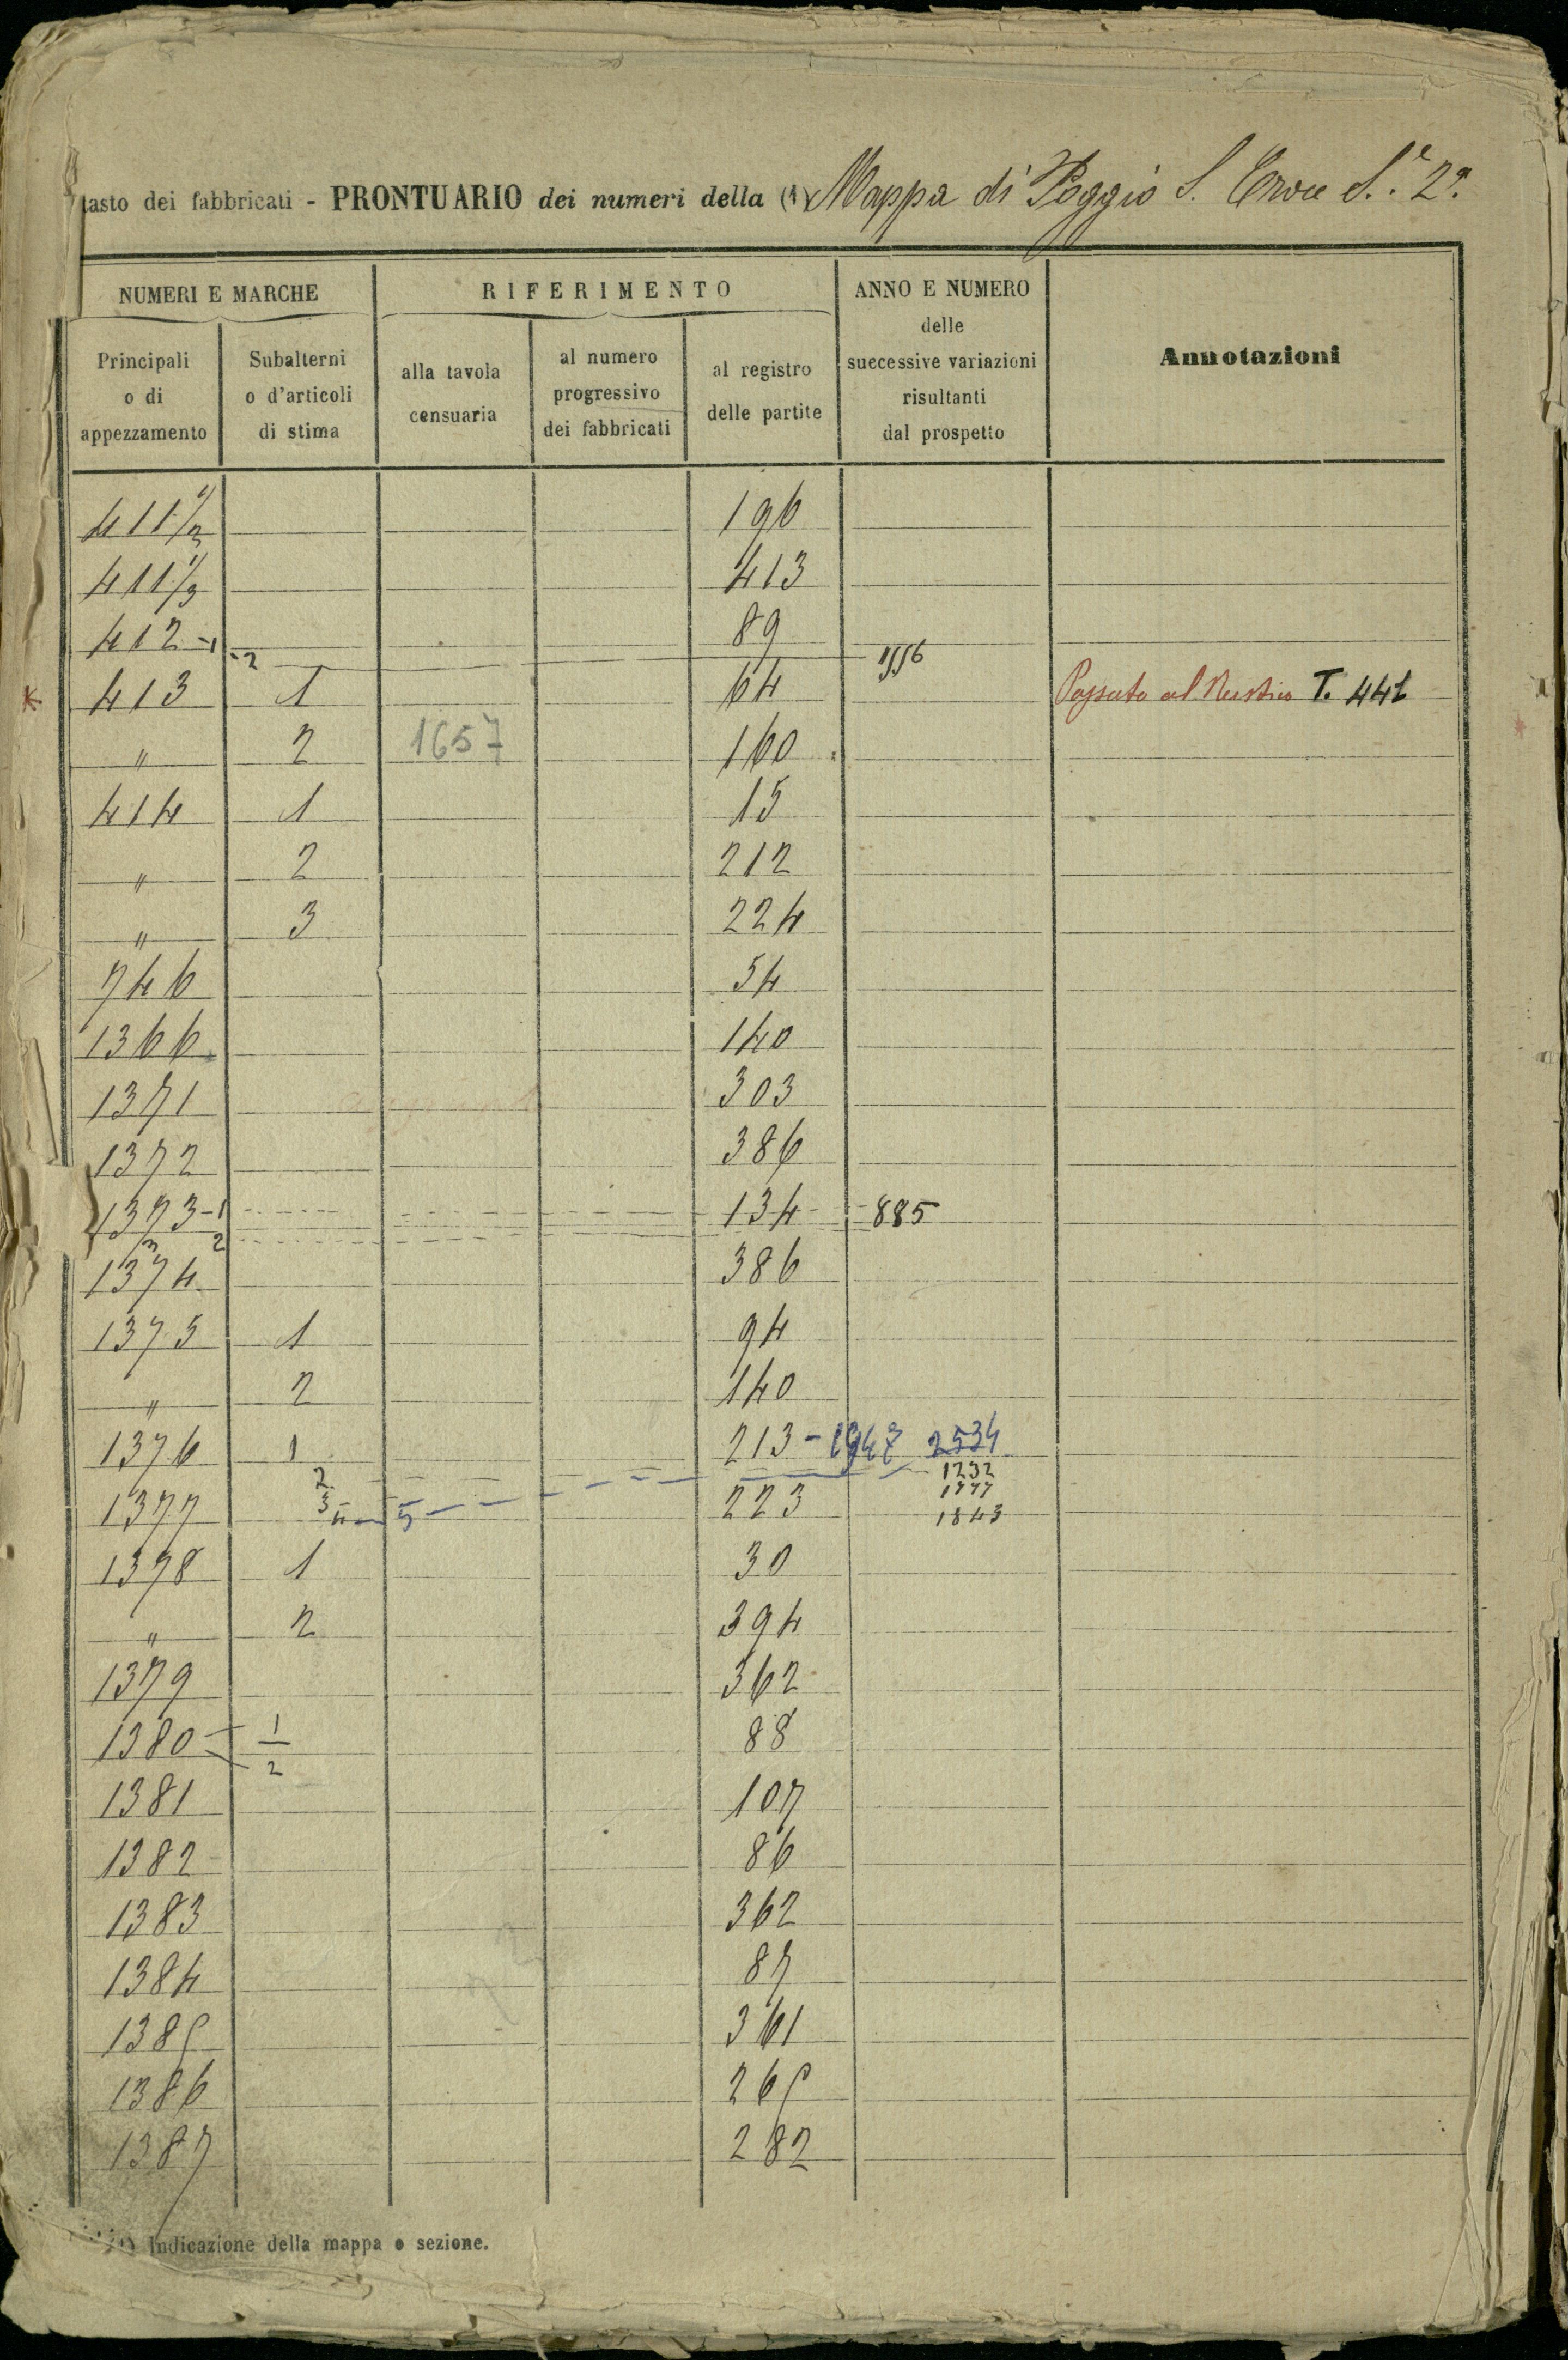 tasto dei fabbricati - PRONTUARIO dei numeri della (1) Mappa di Poggio S. Croce S.e 2a.
NUMERI E MARCHE
RIFERIMENTO
ANNO E NUMERO
delle
successive variazioni
risultanti
dal prospetto
Annotazioni
Principali
o di
appezzamento
Subalterni
o d'articoli
di stima
alla tavola
censuaria
al numero
progressivo
dei fabbricati
al registro
delle partite
411 1/2 196
411 1/3 413
412 -1 89
-2 1556
* 413 1 64 Passato al Rustico T. 442
" 2 1657 160
414 1 15
" 2 212
" 3 224
746 54
1366 140
1371 303
1372 386
1373-1 134 885
3 2
1374 386
1375 1 94
" 2 140
1376 1 213 - 1947 2534
2 1232
1377 3 223 1777
4 - 5 1843
1378 1 30
" 2 394
1379 362
1380 1 88
2
1381 107
1382 86
1383 362
1384 87
1385 361
1386 265
1387 282
(1) Indicazione della mappa o sezione.